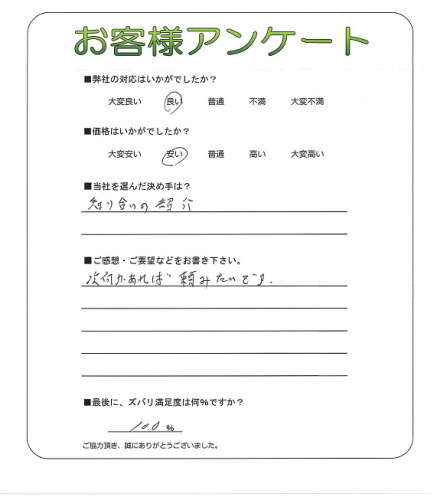 お客様アンケート
■弊社の対応はいかがでしたか?
大変良い 良い 普通 不満 大変不満
■価格はいかがでしたか?
大変安い 安い 普通 高い 大変高い
■当社を選んだ決め手は?
知り合いの紹介
■ご感想・ご要望などをお書き下さい。
次何かあれば頼みたいです。
■最後に、ズバリ満足度は何%ですか?
100%
ご協力頂き、誠にありがとうございました。